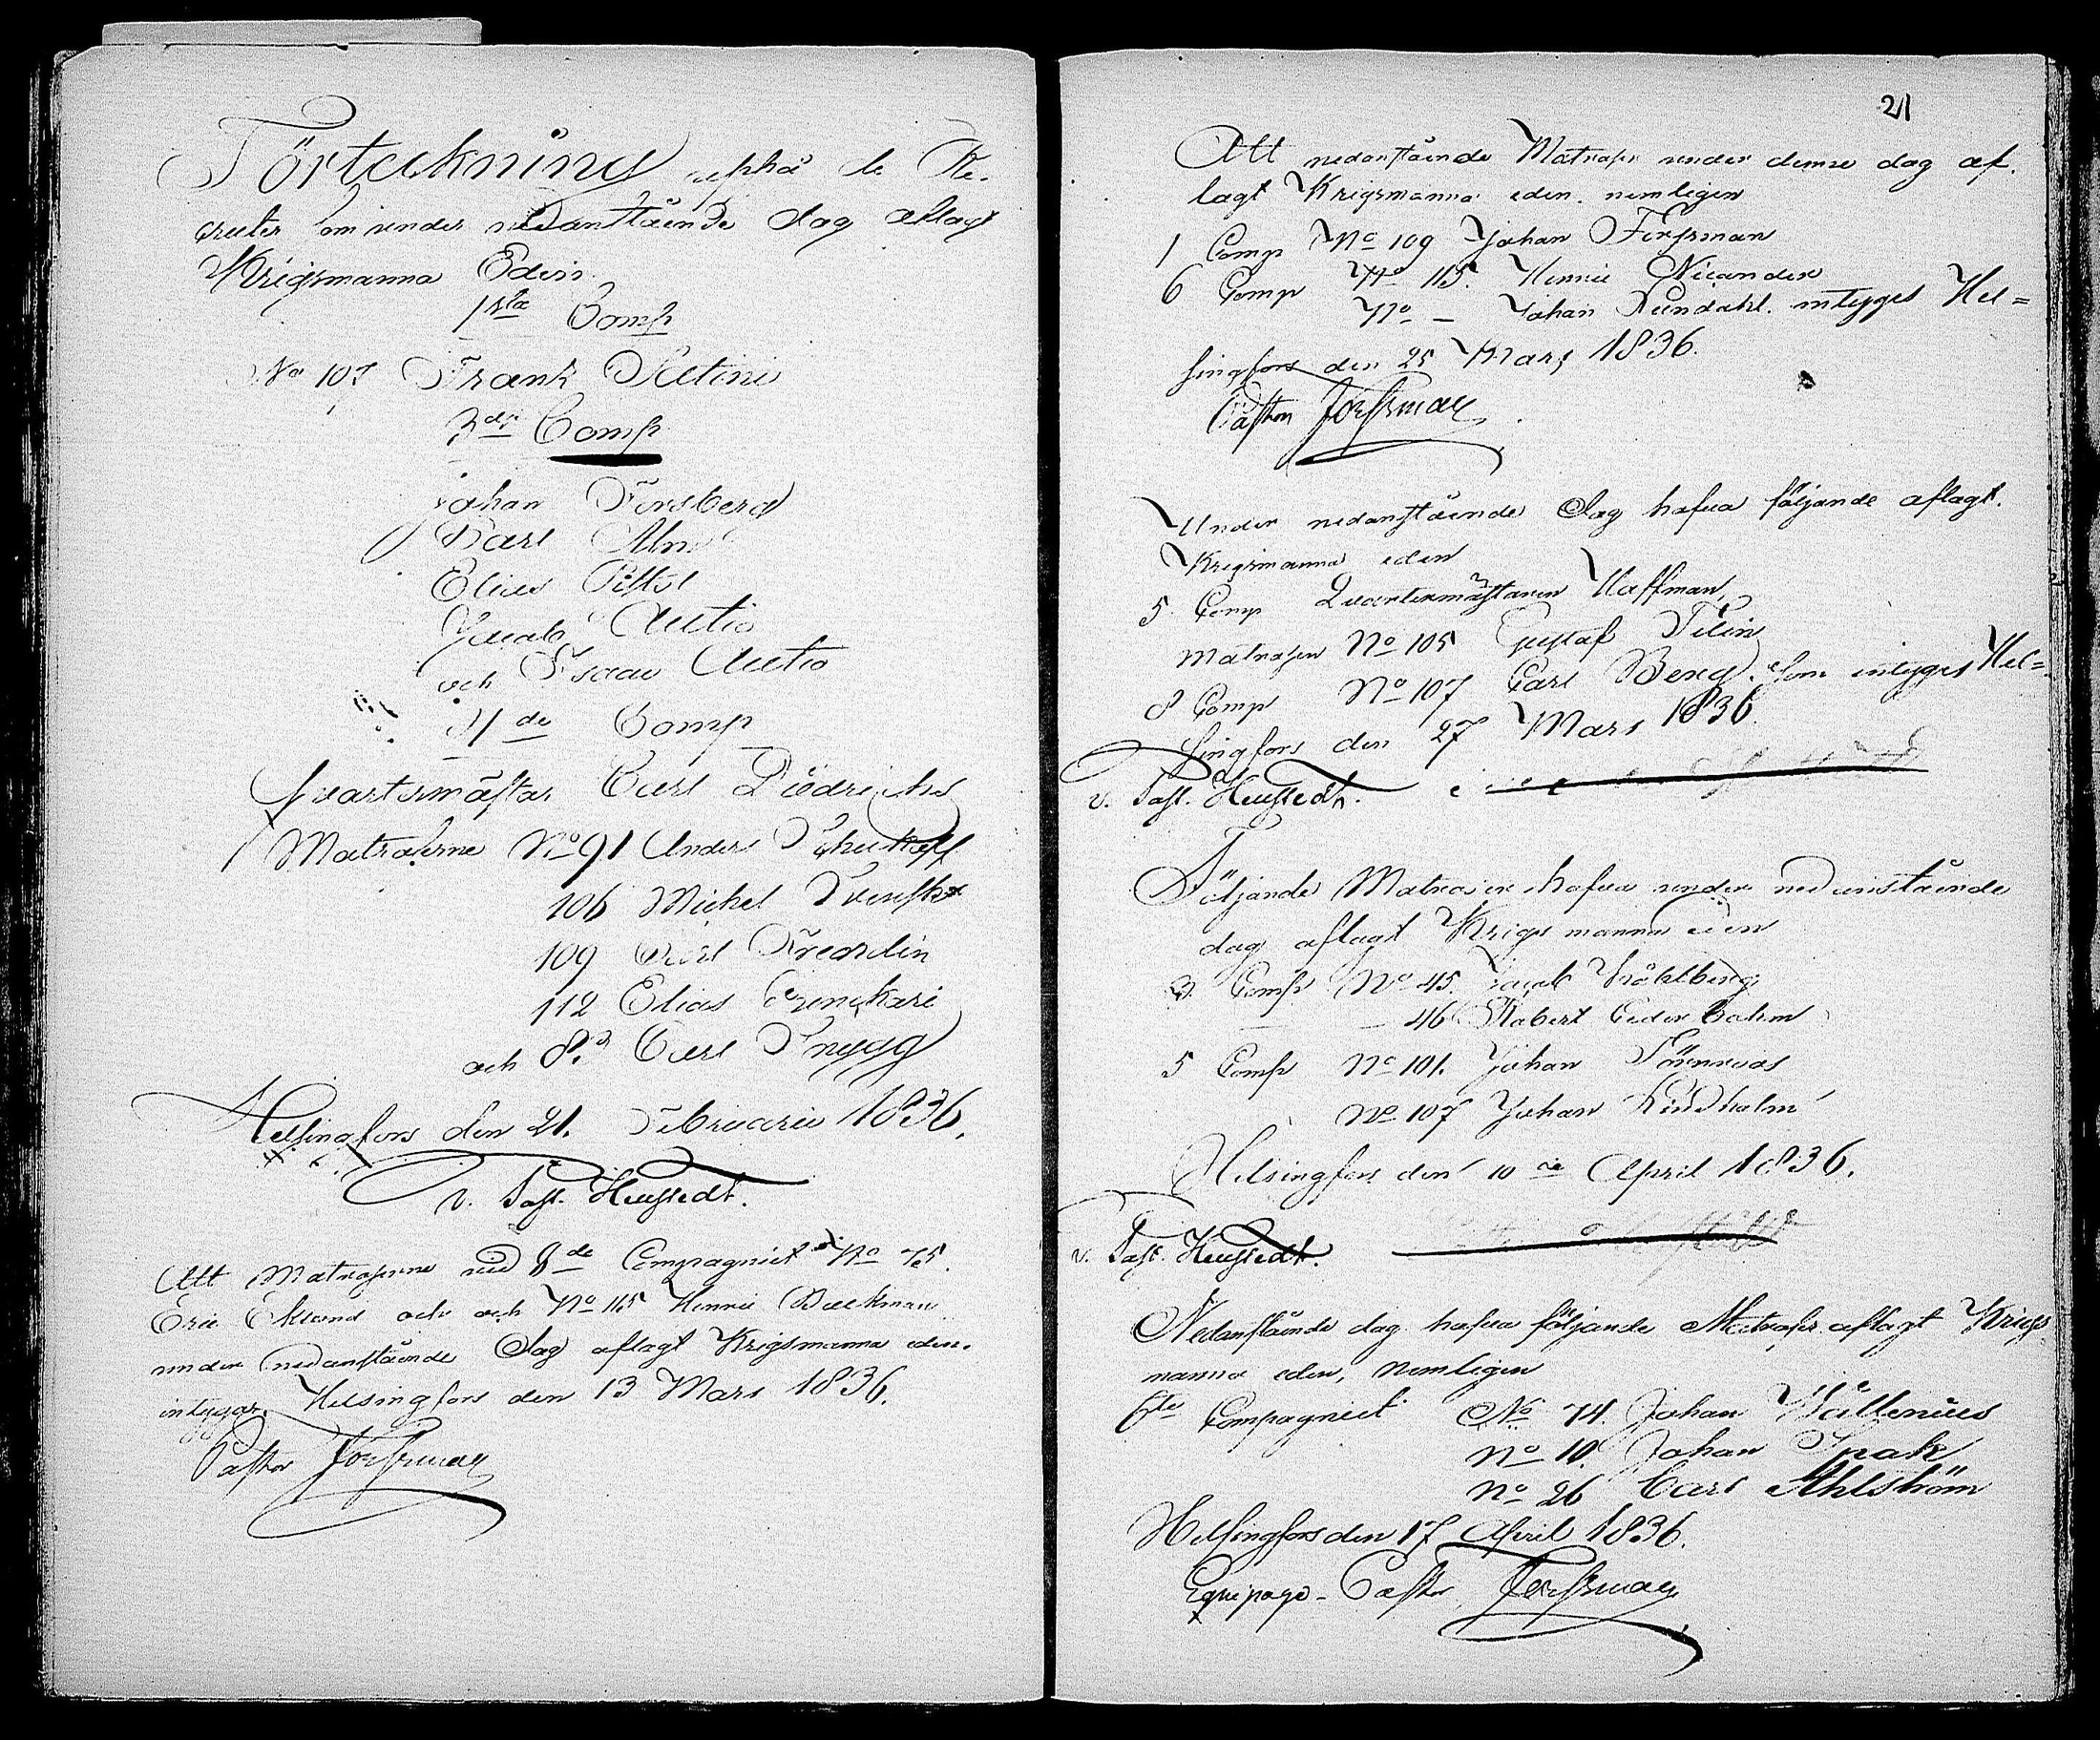 Förteckning uppå de Re-
cruter som under nedanstående dag aflagt
Krigsmanna Eden
1sta Comp
No 107 Frank
3dje Comp
Johan Forsberg
Karl Alm
Elias
Jacob Autio
och Isaac Autio
4de Comp
Qvartermästar Carl Diedrichs
Matroserne No 91 Anders
106 Michel Svensk
109 Carl
112 Elias
och 83 Carl Snygg
Helsingfors den 21. Februarii 1836.
v. Past. Heurstedt.
Att Matroserne vid 8de Compagniet No 75.
Eric Eklund och och No 115 Henric Backman
under nedanstående dag aflagt Krigsmanna eden.
intygar. Helsingfors den 13 Mars 1836.
Pastor Forssman
21
Att nedanstående Matroser under denne dag af-
lagt Krigsmanna eden. nemligen
1 Comp No 109 Johan Forssman
6 Comp No 115. Henric Nicander
No — Johan Sundahl. intyges Hel=
singfors den 25 Mars 1836.
Pastor Forssman
Under nedanstående dag hafva följande aflagt.
Krigsmanna eden
5 Comp Quartermästaren Hoffman,
Matrosen No 105 Gustaf Felin
8 Comp No 107 Carl Berg. som intyges Hel=
singfors den 27 Mars 1836.
v. Past. Heurstedt.
Följande Matroser hafva under nedanstående
dag aflagt Krigsmanna eden
3. Comp No 45. Jacob Ståhlberg
— — 46 Robert Cederholm
5 Comp No 101. Johan Törnroos
No 107 Johan Lindholm
Helsingfors den 10de April 1836.
v. Past. Heurstedt.
Nedanstående dag hafva följande Matroser aflagt Krigs
manna eden, nemligen
6te Compagniet No 74. Johan Wallenius
No 10. Johan Spak
No 26 Carl Ahlström
Helsingfors den 17 April 1836.
Equipage-Pastor Forssman